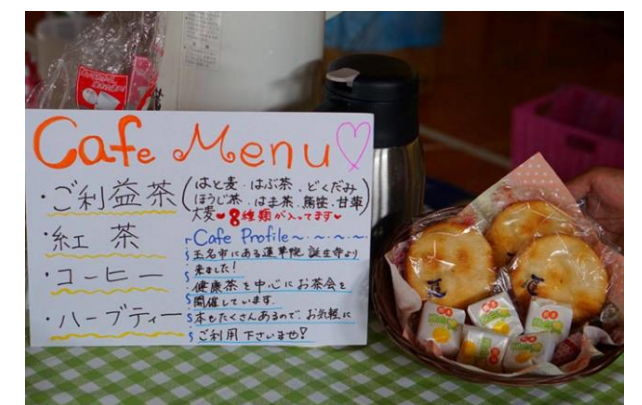 Cafe Menu♡
・ご利益茶(はと麦・はぶ茶・どくだみ
ほうじ茶・はま茶・熊笹・甘草
大麦♥8種類が入ってます♥)
・紅茶
・コーヒー
・ハーブティー
Cafe Profile〜・〜・〜・
玉名市にある蓮華院誕生寺より
来ました!
健康茶を中心にお茶会を
開催しています。
本もたくさんあるので、お気軽に
ご利用下さいませ!